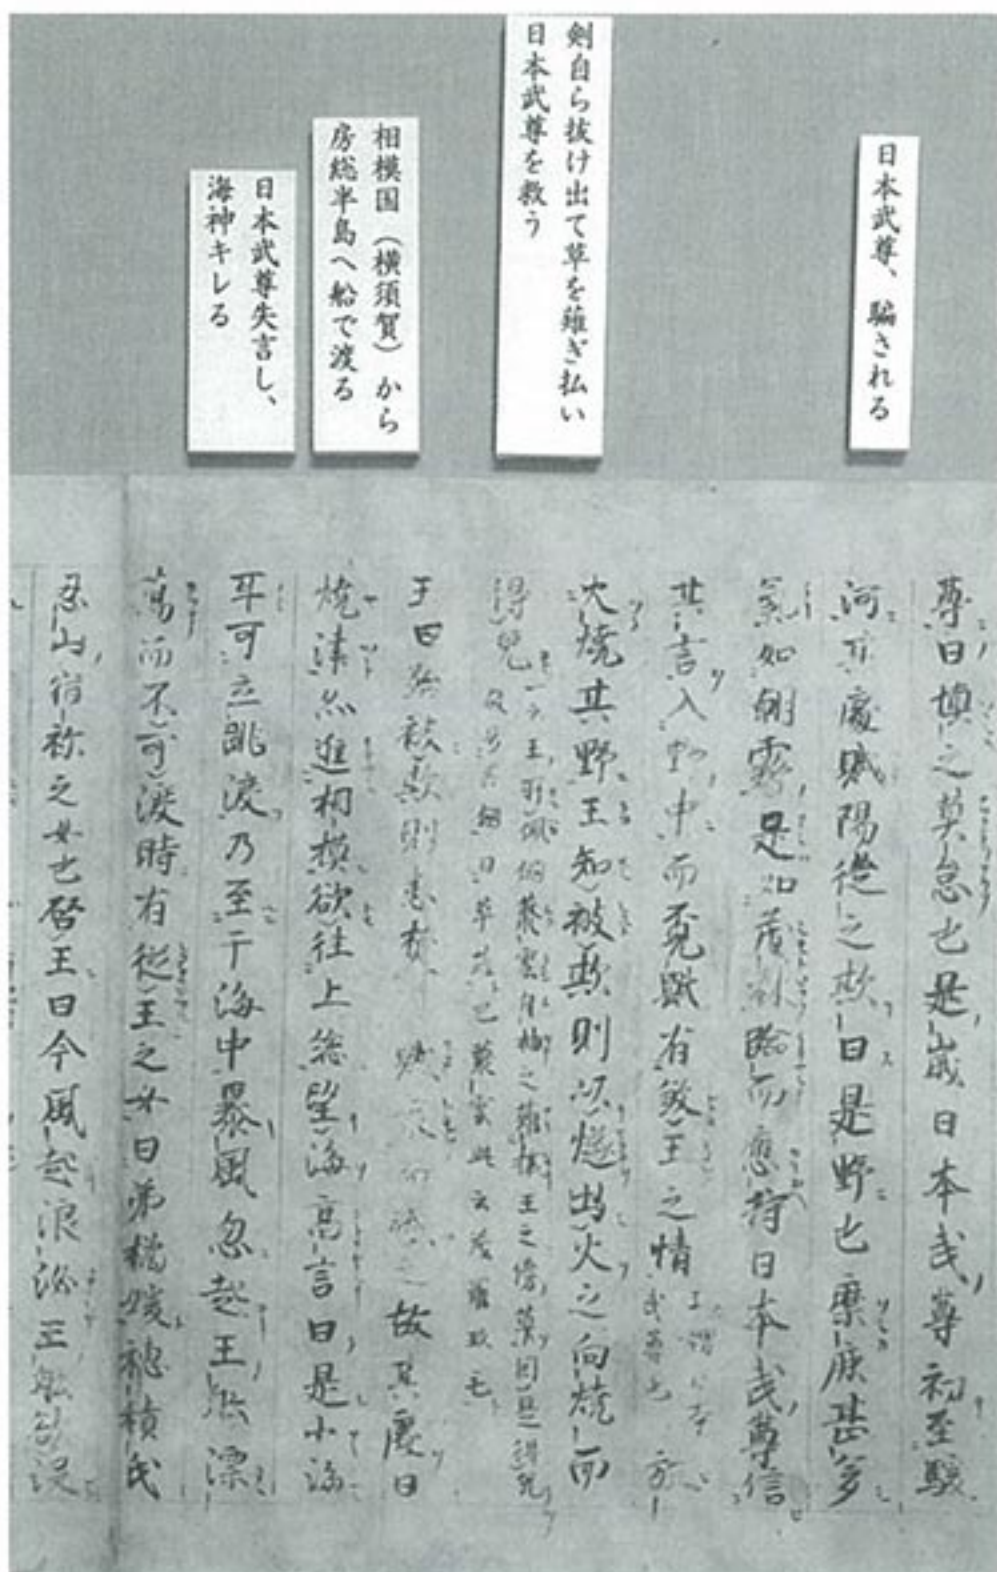 日本武尊、騙される
剣自ら抜け出て草を薙ぎ払い
日本武尊を救う
相模国（横須賀）から
房総半島へ船で渡る
日本武尊失言し、
海神キレる
尊曰慎之莫怠也是歳日本武尊初至駿
河其處賊陽從之欺曰是野也麋鹿甚多
氣如朝霧足如茂林臨而應狩日本武尊信
其言入野中而覓獸賊有殺王之情王謂日本武尊也放
火燒其野王知被欺則以燧出火之向燒而
得免一云王所佩劔叢雲自抽之薙攘王之傍草因是得免
故号其劔曰草薙也叢雲此云茂羅玖毛
王曰殆被欺則悉焚賊衆而滅之故其處曰
燒津亦進相模欲往上総望海高言曰是小海
耳可立跳渡乃至于海中暴風忽起王船漂
蕩而不可渡時有從王之女曰弟橘媛穂積氏
忍山宿祢之女也啓王曰今風起浪泌王船欲没